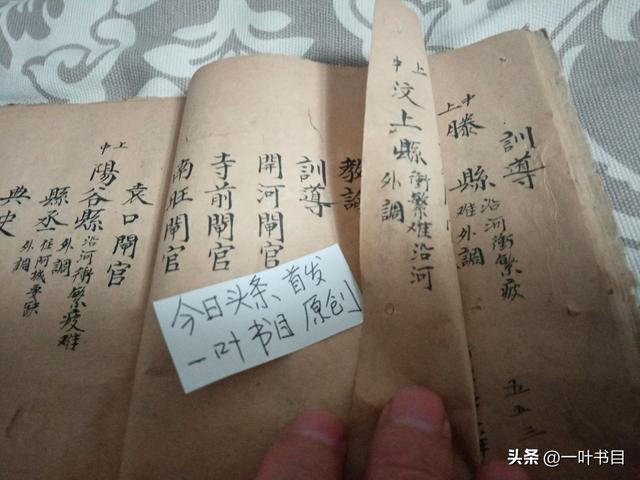 訓導
中上
滕縣
沿河衝繁疲
難外調
上中
汶上縣
衝繁難沿河
外調
教諭
訓導
開河閘官
寺前閘官
南旺閘官
袁口閘官
上中
陽谷縣
沿河衝繁疲難
外調
縣丞
住阿城要缺
外調
典史
今日头条首发
一叶书目 原创
头条 @一叶书目